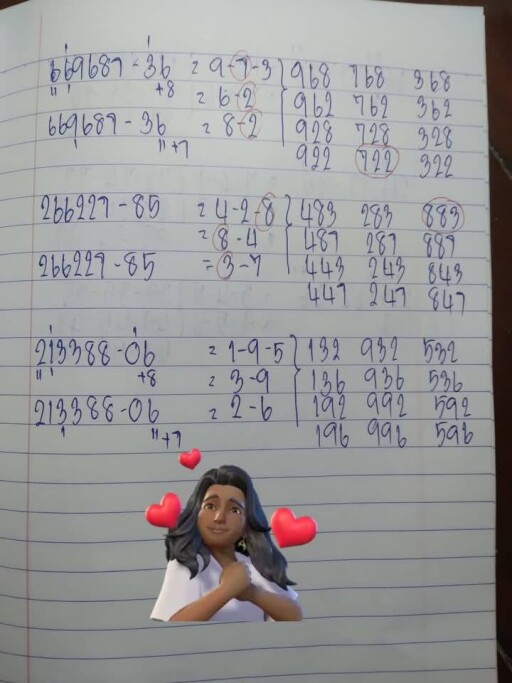 669687 - 36 = 9-7-3 } 968 768 368
+8 = 6-2 962 762 362
669687 - 36 = 8-2 928 728 328
11+7 922 722 322
266227 - 85 = 4-2-8 } 483 283 883
= 8-4 487 287 887
266227 - 85 = 3-7 443 243 843
447 247 847
213388 - 06 = 1-9-5 } 132 932 532
+8 = 3-9 136 936 536
213388 - 06 = 2-6 192 992 592
11+7 196 996 596